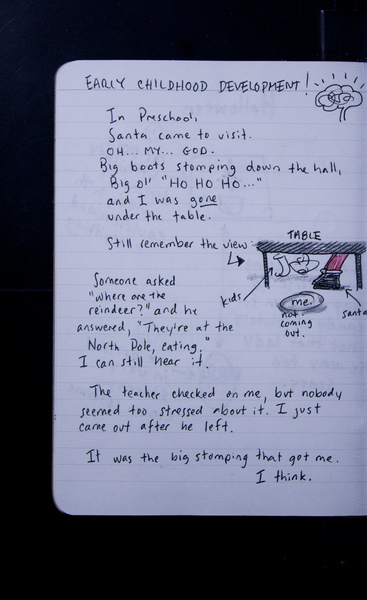 EARLY CHILDHOOD DEVELOPMENT!
In Preschool,
Santa came to visit.
OH... MY... GOD.
Big boots stomping down the hall,
Big ol' "HO HO HO..."
and I was gone
under the table.
Still remember the view
TABLE
kids
me.
not
coming
out.
santa
Someone asked
"Where are the
reindeer?" and he
answered, "They're at the
North Pole, eating."
I can still hear it.
The teacher checked on me, but nobody
seemed too stressed about it. I just
came out after he left.
It was the big stomping that got me.
I think.